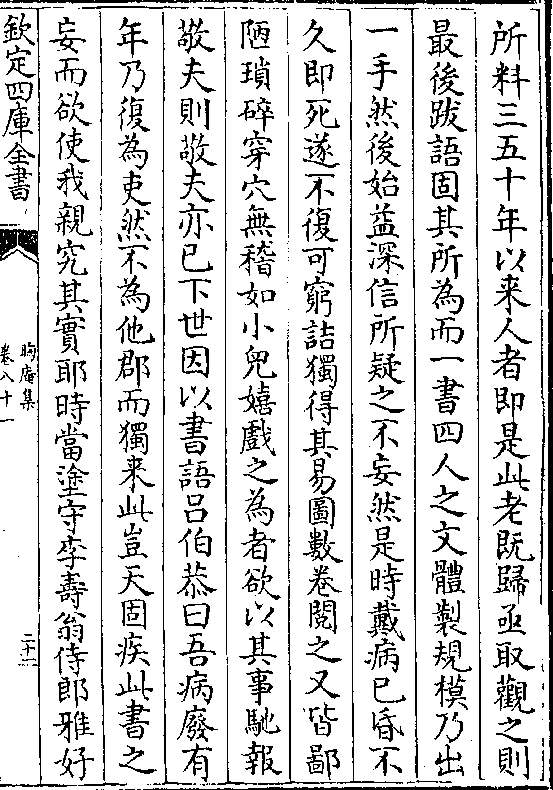 所料三五十年以来人者即是此老既歸亟取觀之則
最後跋語固其所為而一書四人之文體製規模乃出
一手然後始益深信所疑之不妄然是時戴病已昏不
久即死遂不復可窮詰獨得其易圖數卷閲之又皆鄙
陋瑣碎穿穴無稽如小兒嬉戲之為者欲以其事馳報
敬夫則敬夫亦已下世因以書語呂伯恭曰吾病廢有
年乃復為吏然不為他郡而獨来此豈天固疾此書之
妄而欲使我親究其實耶時當塗守李壽翁侍郎雅好
欽定四庫全書
晦庵集
卷八十一
二十二